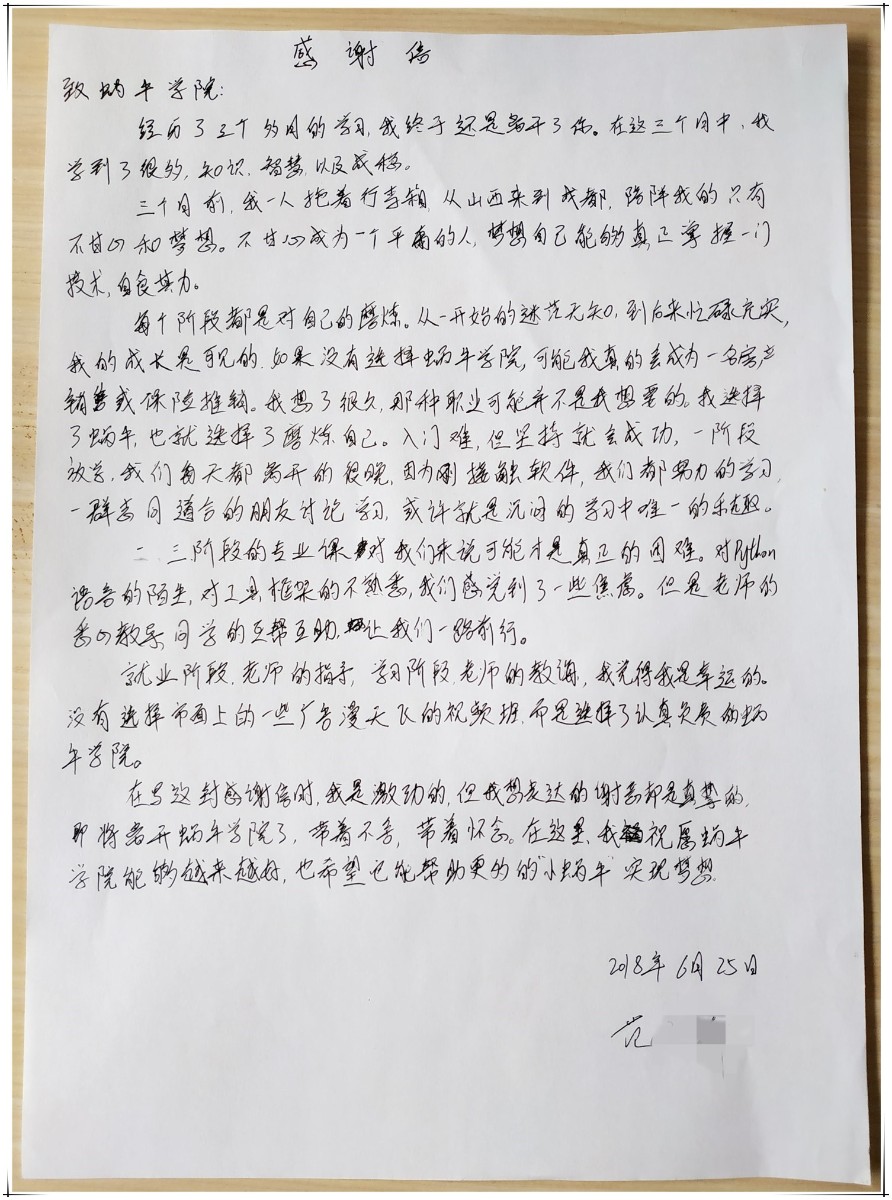 感谢信
致蜗牛学院:
经历了三个多月的学习,我终于还是离开了你。在这三个月中,我
学到了很多,知识、智慧,以及成稳。
三个月前,我一人拖着行李箱,从山西来到成都,陪伴我的只有
不甘心和梦想。不甘心成为一个平庸的人,梦想自己能够真正掌握一门
技术,自食其力。
每个阶段都是对自己的磨炼。从一开始的迷茫无知,到后来忙碌充实,
我的成长是可见的.如果没有选择蜗牛学院,可能我真的会成为一名房产
销售或保险推销。我想了很久,那种职业可能并不是我想要的。我选择
了蜗牛,也就选择了磨炼自己。入门难,但坚持就会成功,一阶段
放学,我们每天都离开的很晚,因为刚接触软件,我们都努力的学习,
一群志同道合的朋友讨论学习,或许就是沉闷的学习中唯一的乐趣。
二、三阶段的专业课对我们来说可能才是真正的困难。对Python
语言的陌生,对工具,框架的不熟悉,我们感觉到了一些焦虑。但是老师的
悉心教导,同学的互帮互助,让我们一路前行。
就业阶段,老师的指导,学习阶段,老师的教诲,我觉得我是幸运的。
没有选择市面上的一些广告漫天飞的视频班,而是选择了认真负责的蜗
牛学院。
在写这封感谢信时,我是激动的,但我想表达的谢意却是真挚的,
即将离开蜗牛学院了,带着不舍,带着怀念。在这里,我祝愿蜗牛
学院能够越来越好,也希望它能帮助更多的"小蜗牛"实现梦想.
2018年6月25日
范